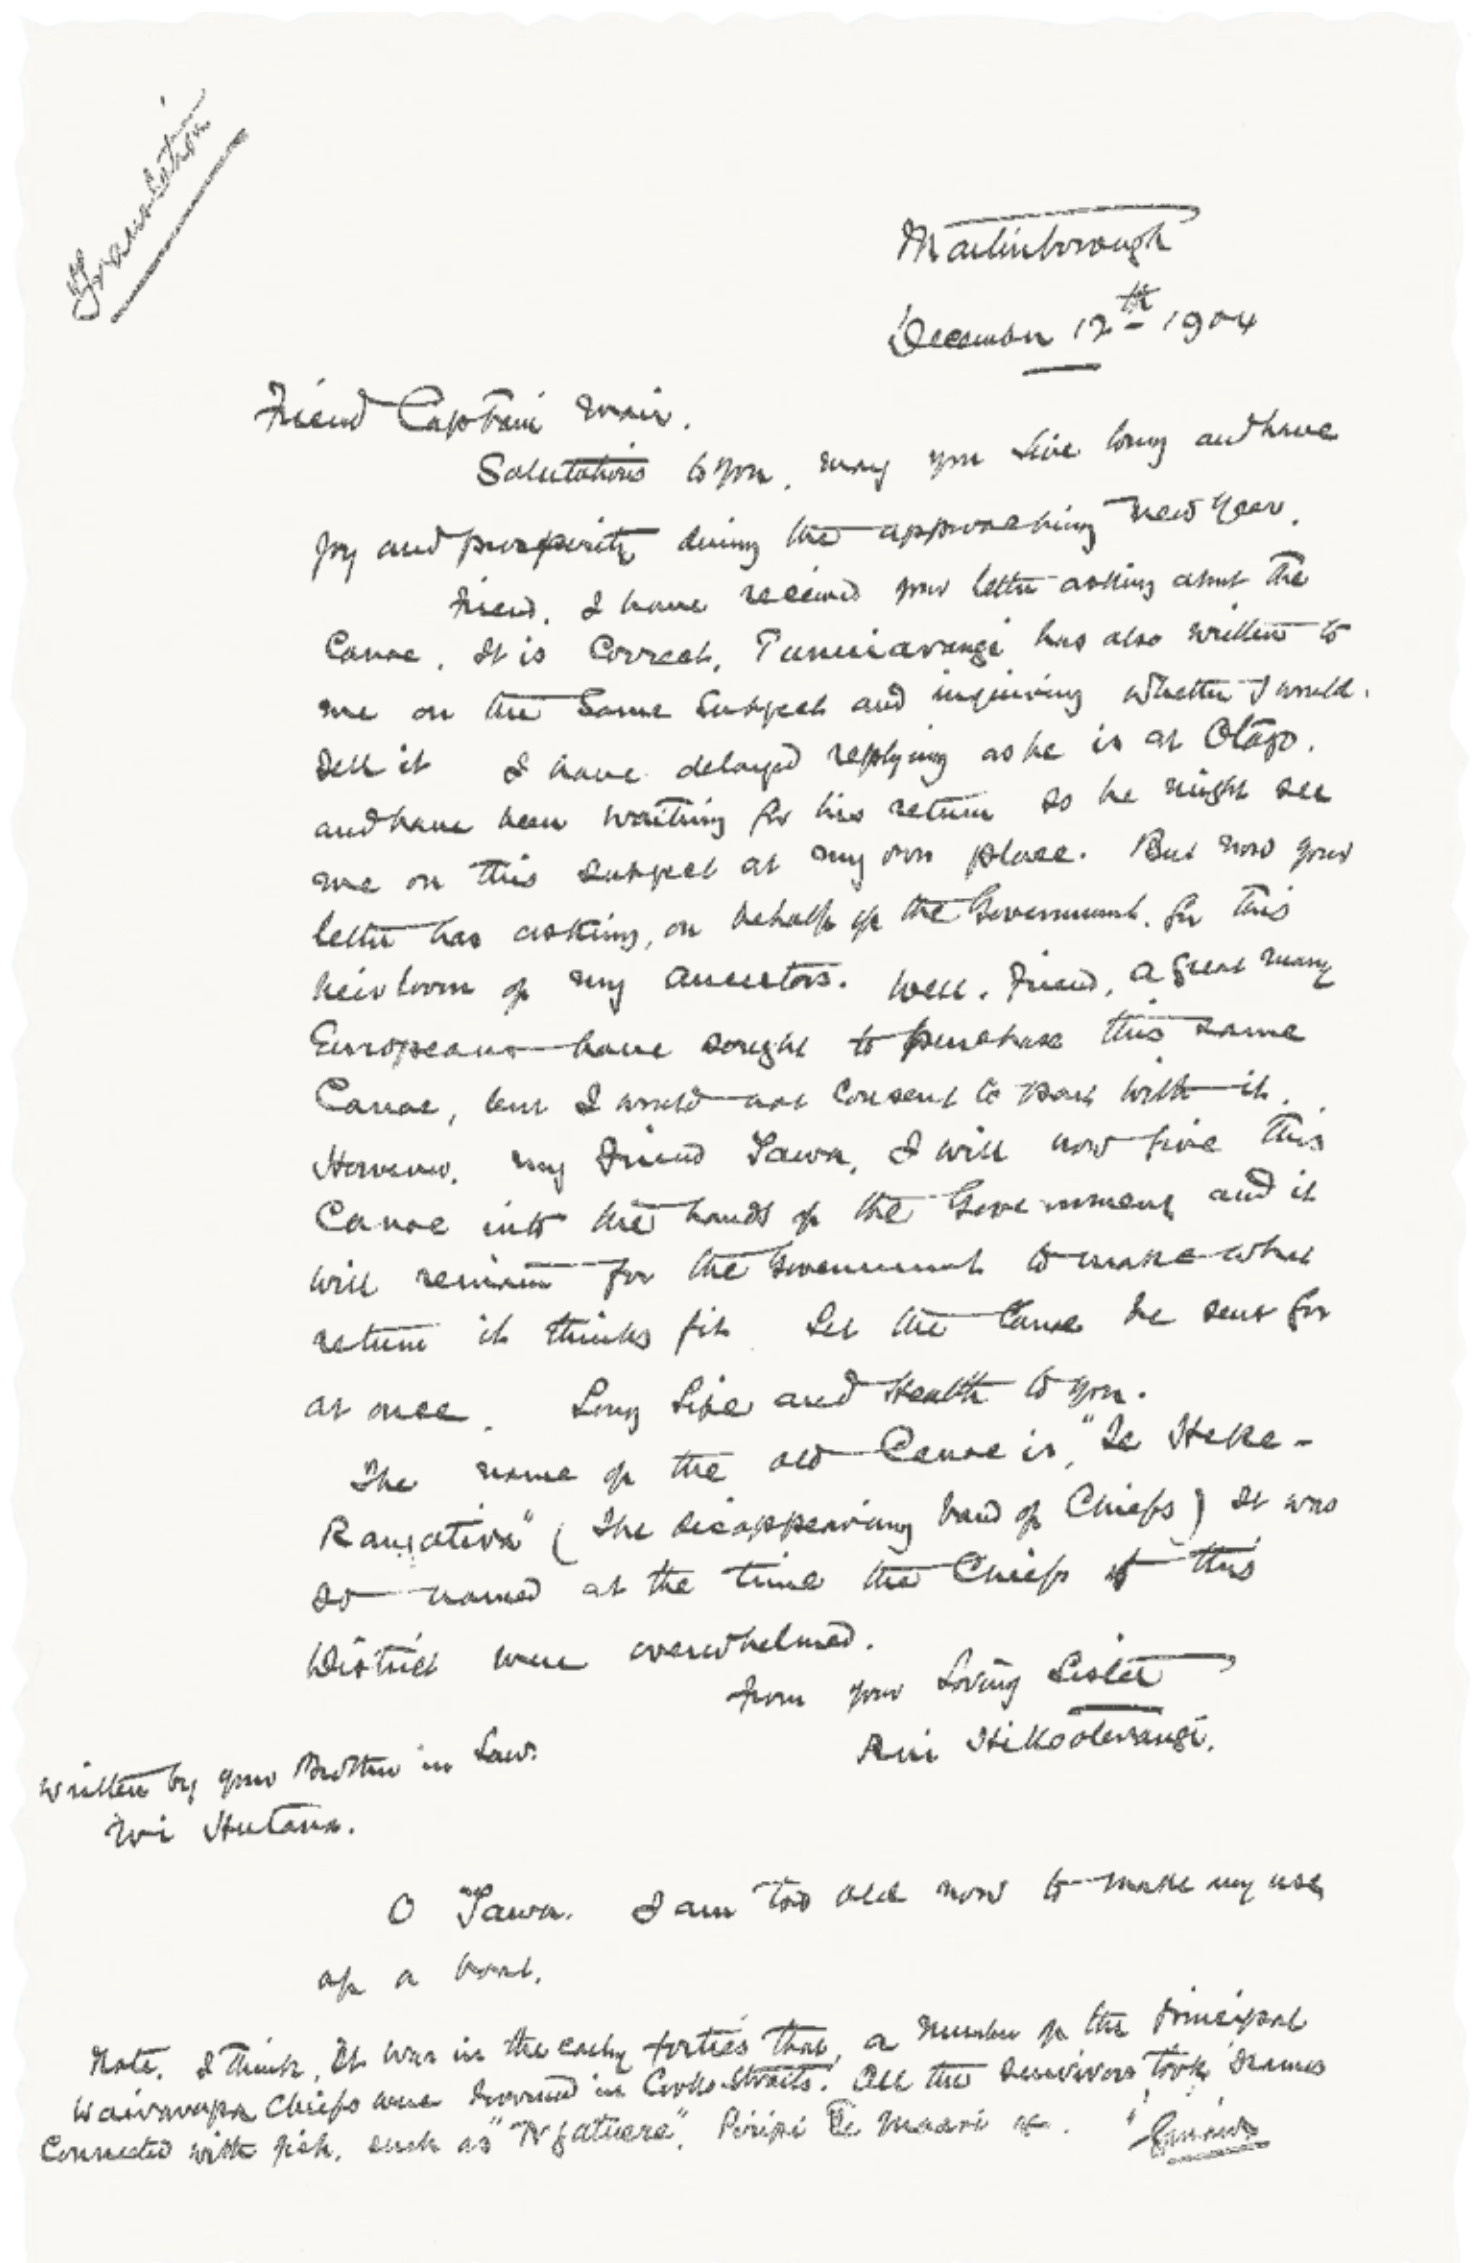 Translation
Martinborough
December 12th 1904
Friend Captain Mair.
Salutations to you, may you live long and have
joy and prosperity during the approaching New Year.
Friend, I have received your letter asking about the
Canoe, It is Correct, Tunuiarangi has also written to
me on the same subject and inquiring whether I would
sell it I have delayed replying as he is at Otago.
and have been waiting for his return so he might see
me on this subject at my own place. But now your
letter has asking, on behalf of the Government, for this
heirloom of my ancestors. Well, Friend, a great many
Europeans have sought to purchase this same
Canoe, but I would not consent to part with it.
However, my Friend Tawa, I will now give this
Canoe into the hands of the Government and it
will remain for the Government to make what
return it thinks fit Let the Canoe be sent for
at once. Long Life and Health to you.
The name of the old Canoe is, "Te Heke-
Rangatira" (The disappearing band of Chiefs) It was
so named at the time the Chiefs of this
District were overwhelmed.
From your Loving Sister
Ani Hikooterangi.
Written by your Brother in Law.
Wi Hutana.
O Tawa. I am too old now to make my use
of a boat.
Note. I think, It was in the early forties that, a number of the Principal
Wairarapa Chiefs were drowned in Cooks Straits. All the survivors took names
Connected with fish, such as "Ngatuere", Piripi Te Maari &c.